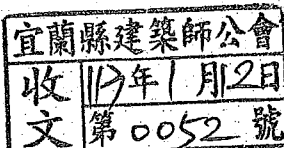 宜蘭縣建築師公會
收文
113年1月12日
第0052號